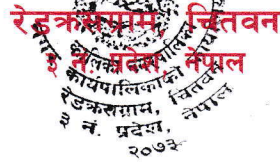 रेडक्रसग्राम, चितवन
३ नं. प्रदेश, नेपाल
कार्यपालिकाको
रेडक्रसग्राम, चितवन
३ नं. प्रदेश, नेपाल
२०७३